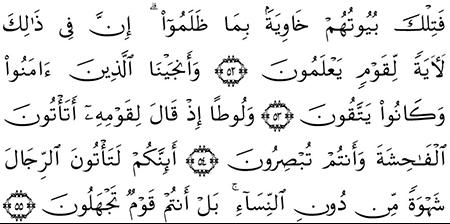 فَتِلْكَ بُيُوتُهُمْ خَاوِيَةًۢ بِمَا ظَلَمُوٓا۟ ۗ إِنَّ فِى ذَٰلِكَ
لَـَٔايَةً لِّقَوْمٍ يَعْلَمُونَ ۝٥٢ وَأَنجَيْنَا ٱلَّذِينَ ءَامَنُوا۟
وَكَانُوا۟ يَتَّقُونَ ۝٥٣ وَلُوطًا إِذْ قَالَ لِقَوْمِهِۦٓ أَتَأْتُونَ
ٱلْفَـٰحِشَةَ وَأَنتُمْ تُبْصِرُونَ ۝٥٤ أَئِنَّكُمْ لَتَأْتُونَ ٱلرِّجَالَ
شَهْوَةً مِّن دُونِ ٱلنِّسَآءِ ۚ بَلْ أَنتُمْ قَوْمٌ تَجْهَلُونَ ۝٥٥